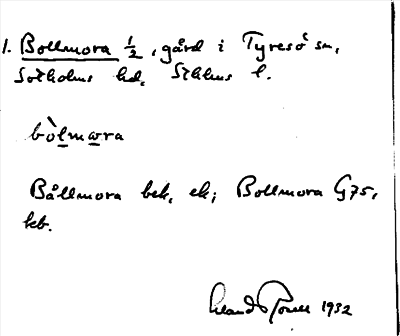 1. Bollmora 1/2, gård i Tyresö sn,
Sotholms hd, Sthlms l.
bòlmωra
Bållmora bek. ek; Bollmora G75,
kb.
1932